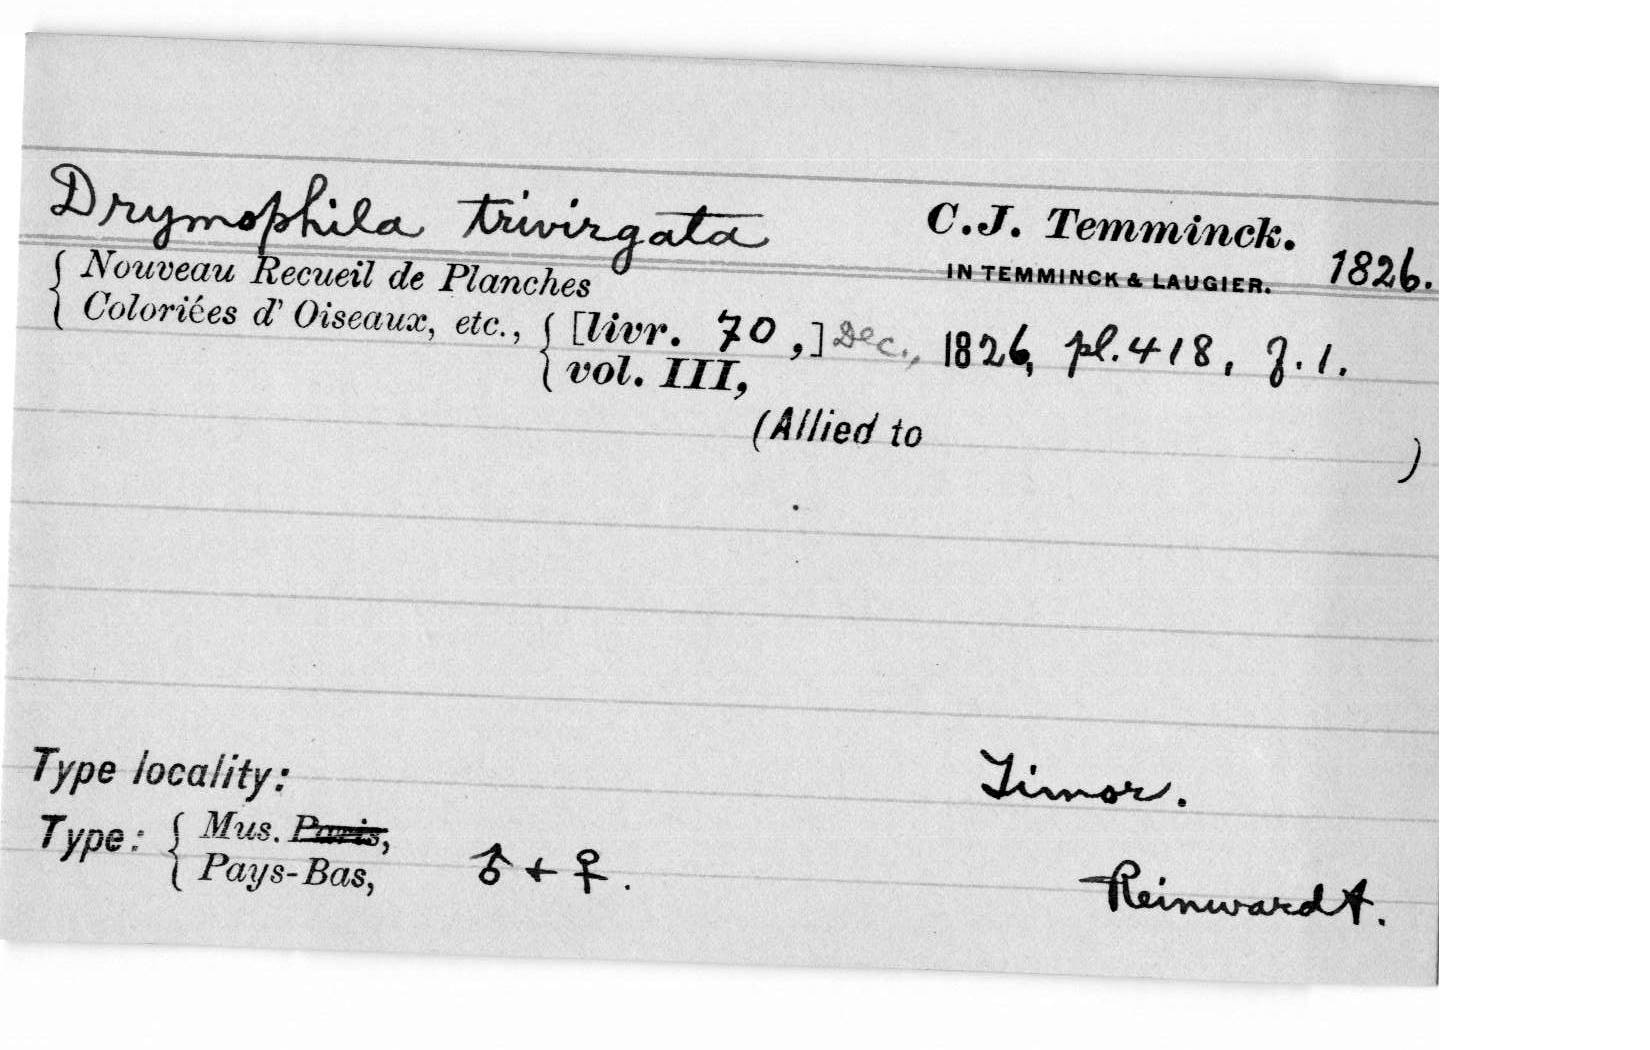 Drymophila trivirgata C.J. Temminck.
IN TEMMINCK & LAUGIER. 1826.
{ Nouveau Recueil de Planches
Coloriées d' Oiseaux, etc., { [livr. 70 ,] Dec., 1826, pl. 418, f. 1.
vol. III,
(Allied to )
Type locality: Timor.
Type: { Mus. Paris,
Pays-Bas, ♂ + ♀. Reinwardt.